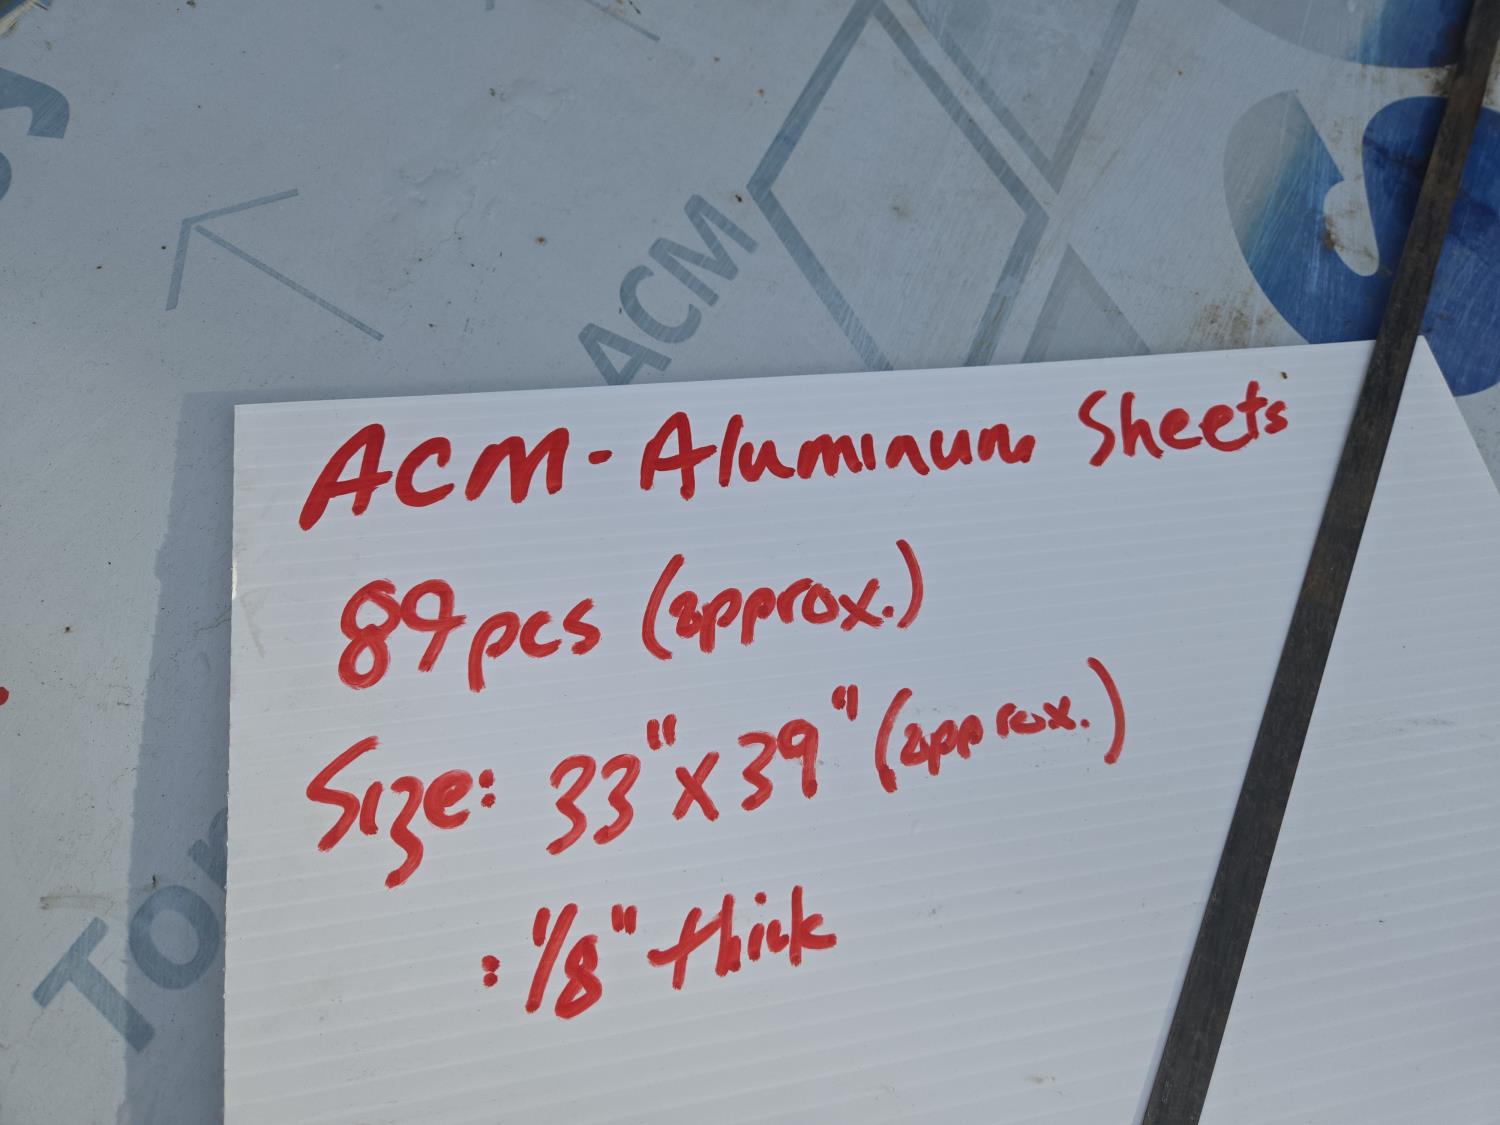 ACM
ACM-Aluminum Sheets
89pcs (approx.)
Size: 33"x39" (approx.)
: 1/8" thick